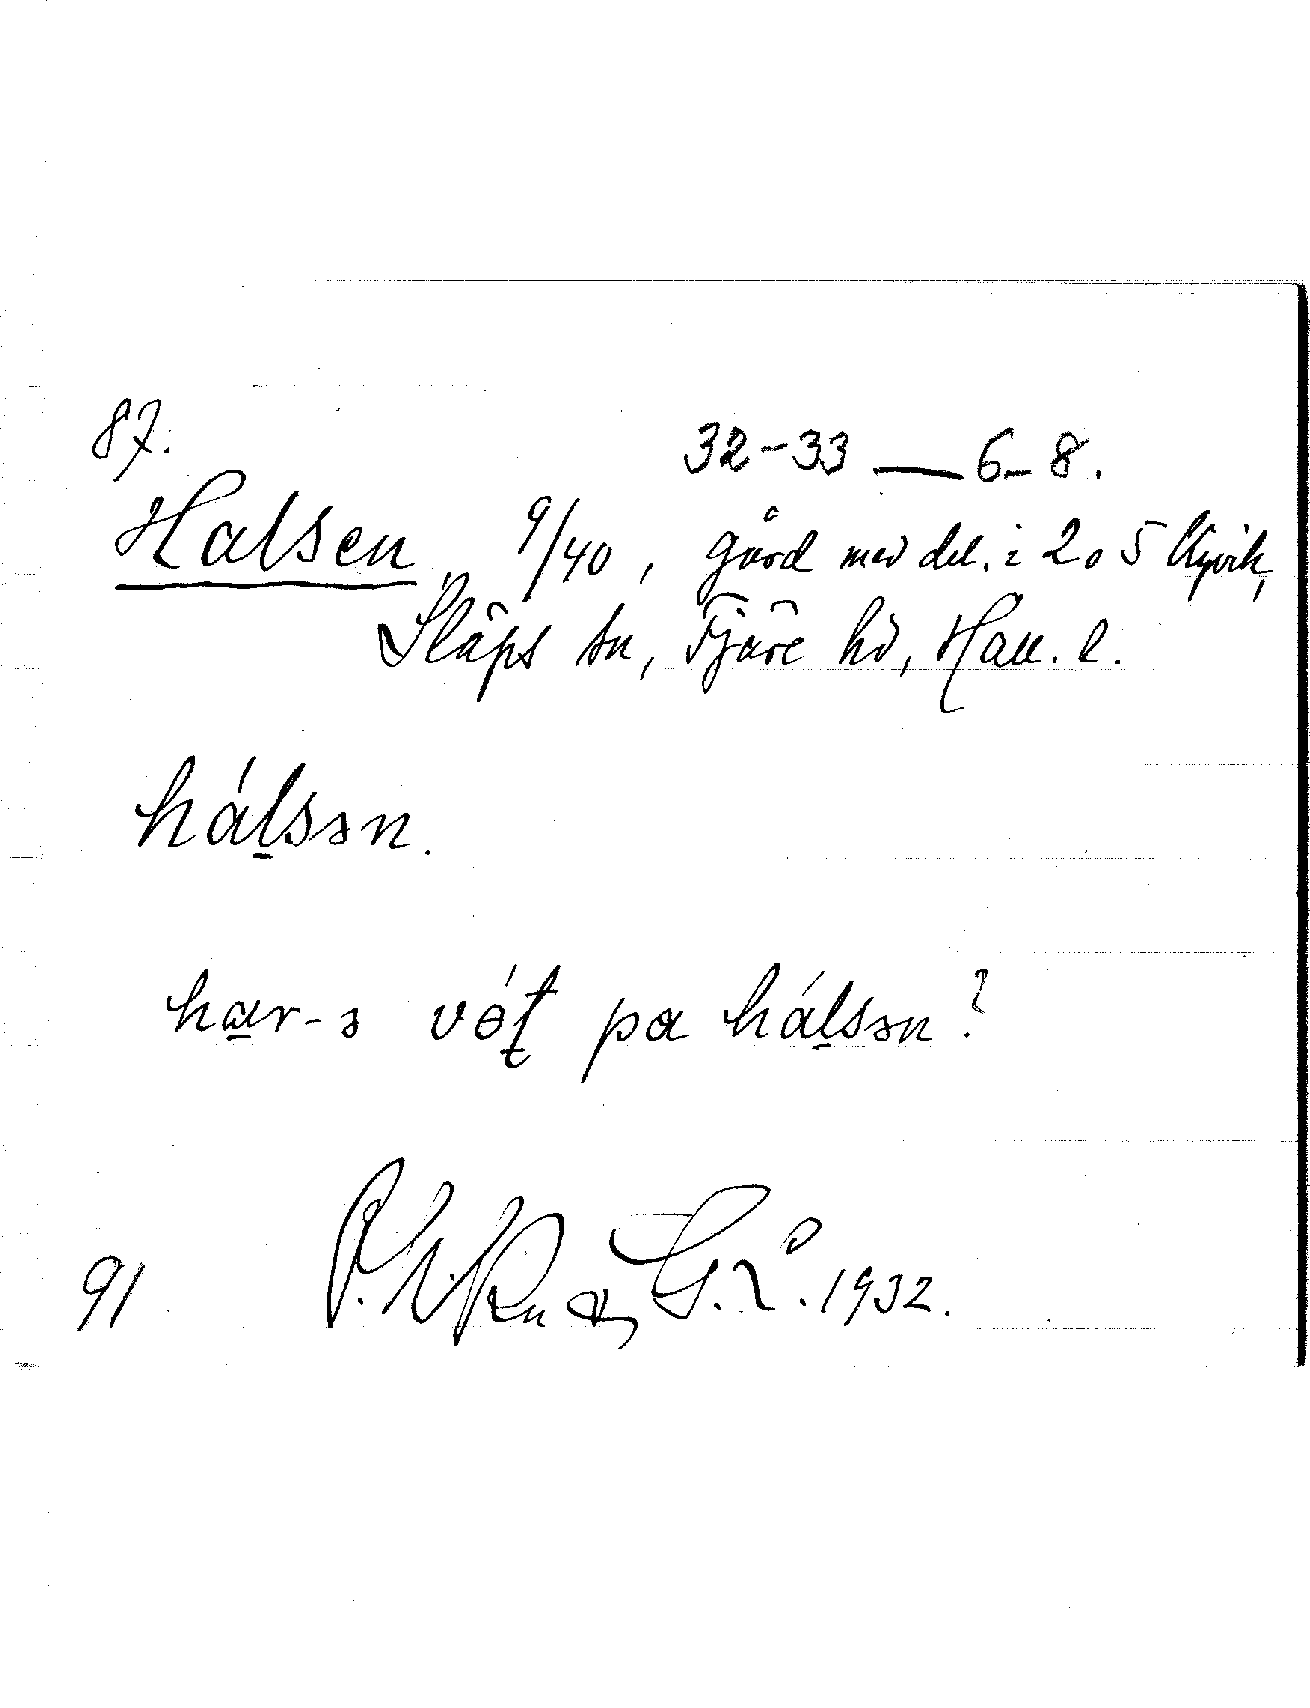 87.
32-33 — 6-8.
Halsen 9/40, gård med del. i 2 o 5 Kyvik,
Släps sn, Fjäre hd, Hall. l.
hálsən.
har-ə vót pa hálsən?
91 1932.